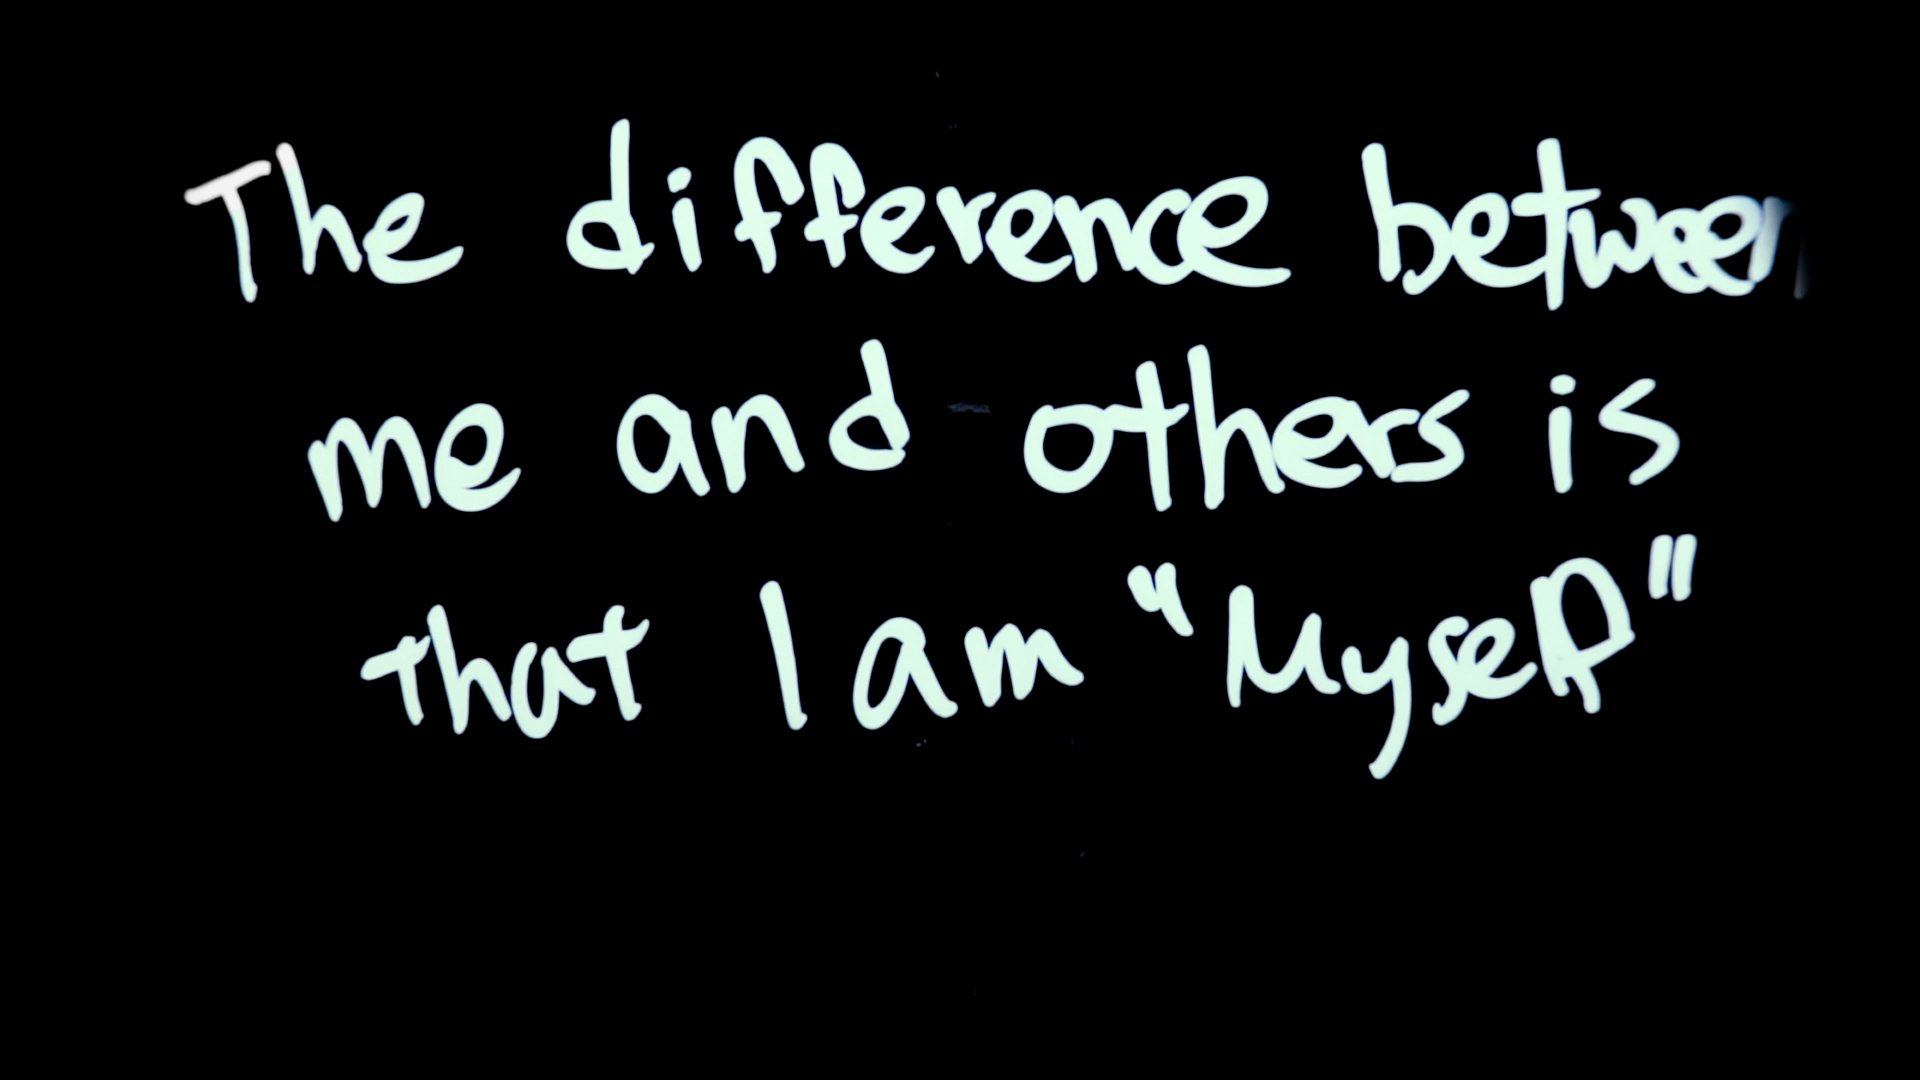 The difference between
me and others is
that I am "Myself"